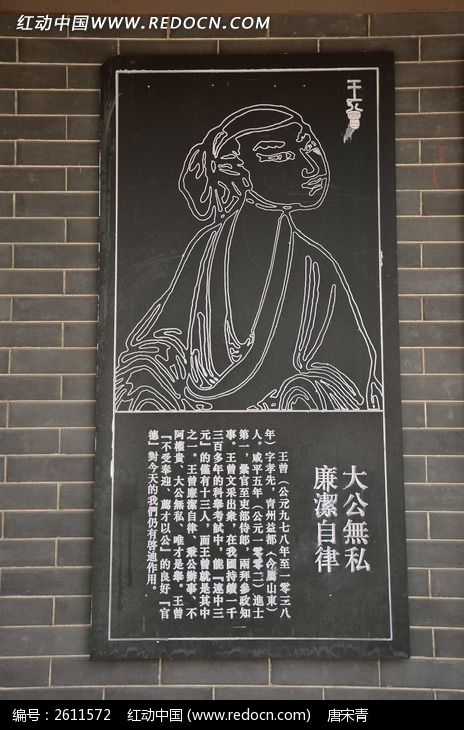 红动中国 WWW.REDOCN.COM
王曾
大公無私
廉潔自律
王曾（公元九七八年至一零三八
年）字孝先，青州益都（今屬山東）
人。咸平五年（公元一零零二）進士
第一，纍官至吏部侍郎，兩拜參政知
事。王曾文采出衆，在我國持續一千
三百多年的科舉考試中，能『連中三
元』的僅有十三人，而王曾就是其中
之一。王曾廉潔自律、秉公辦事、不
阿權貴、大公無私、唯才是舉。王曾
『不受奉迎、薦才以公』的良好『官
德』對今天的我們仍有啓迪作用。
编号：2611572 红动中国 (www.redocn.com) 唐宋青